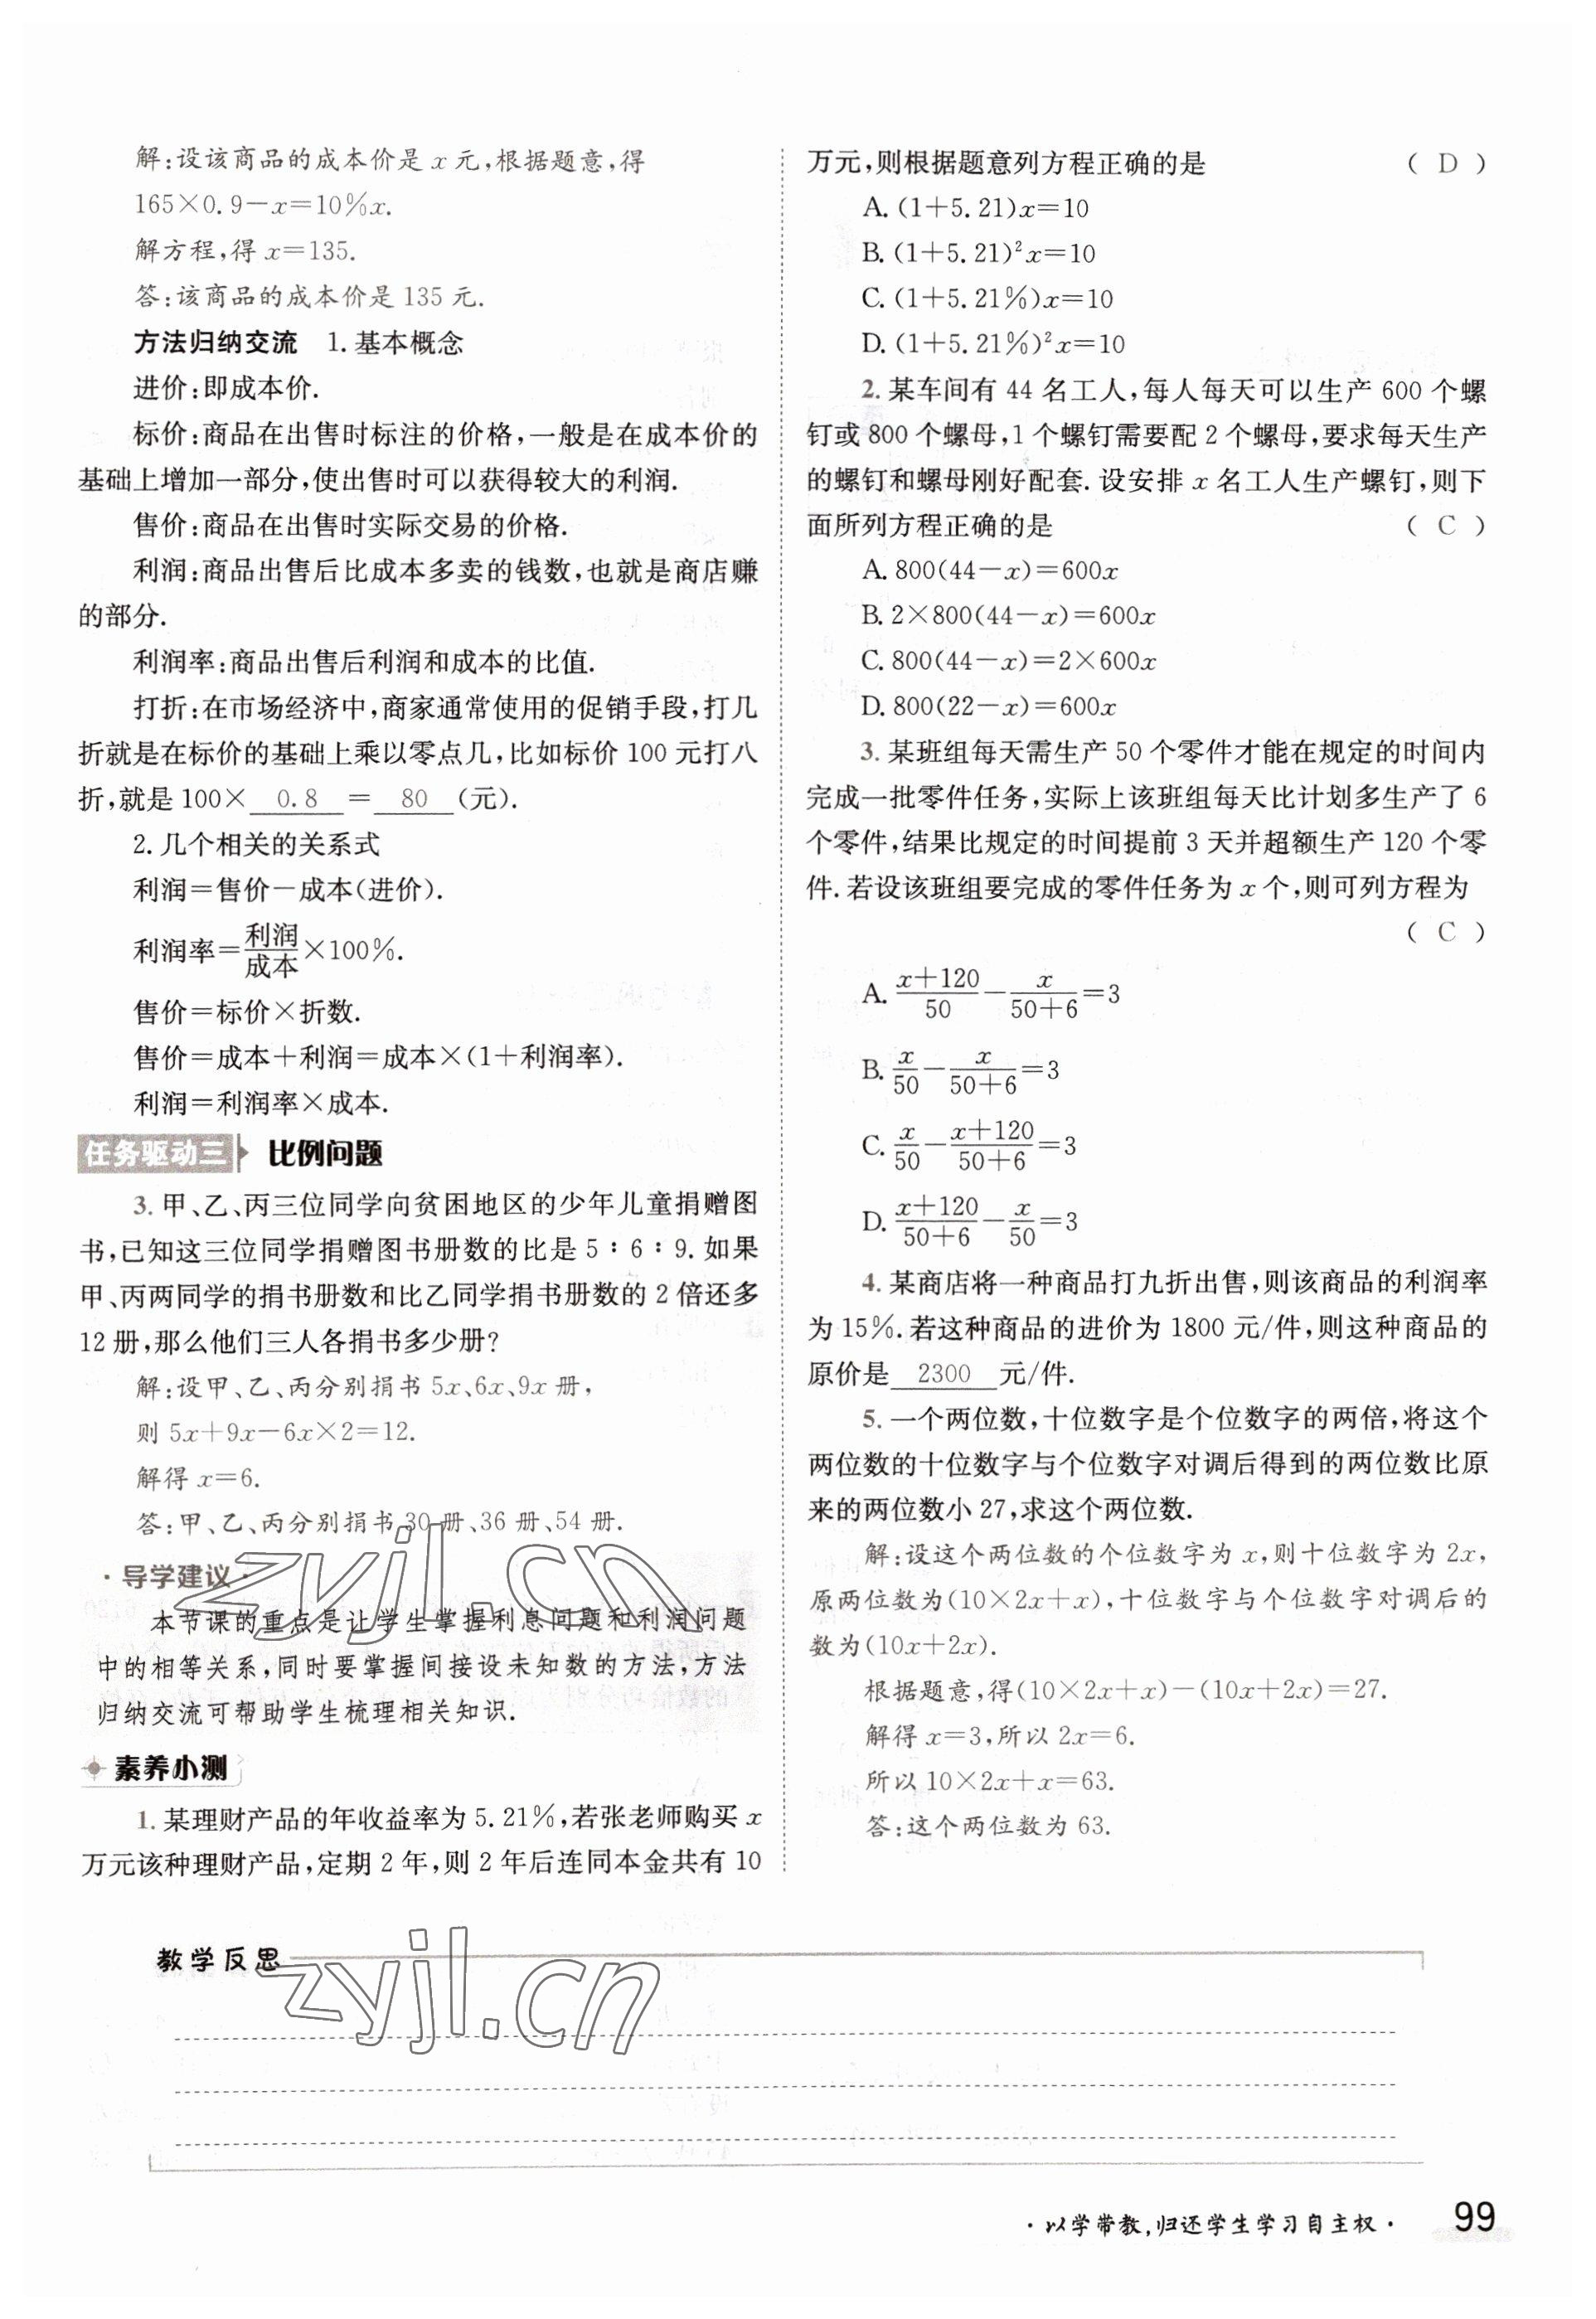 解:设该商品的成本价是 x 元,根据题意,得
165×0.9-x=10%x.
解方程,得 x=135.
答:该商品的成本价是 135 元.
方法归纳交流 1.基本概念
进价:即成本价.
标价:商品在出售时标注的价格,一般是在成本价的
基础上增加一部分,使出售时可以获得较大的利润.
售价:商品在出售时实际交易的价格.
利润:商品出售后比成本多卖的钱数,也就是商店赚
的部分.
利润率:商品出售后利润和成本的比值.
打折:在市场经济中,商家通常使用的促销手段,打几
折就是在标价的基础上乘以零点几,比如标价 100 元打八
折,就是 100× 0.8 = 80 (元).
2.几个相关的关系式
利润=售价-成本(进价).
利润率=利润/成本×100%.
售价=标价×折数.
售价=成本+利润=成本×(1+利润率).
利润=利润率×成本.
任务驱动三 比例问题
3.甲、乙、丙三位同学向贫困地区的少年儿童捐赠图
书,已知这三位同学捐赠图书册数的比是 5∶6∶9.如果
甲、丙两同学的捐书册数和比乙同学捐书册数的 2 倍还多
12 册,那么他们三人各捐书多少册?
解:设甲、乙、丙分别捐书 5x、6x、9x 册,
则 5x+9x-6x×2=12.
解得 x=6.
答:甲、乙、丙分别捐书 30 册、36 册、54 册.
·导学建议·
本节课的重点是让学生掌握利息问题和利润问题
中的相等关系,同时要掌握间接设未知数的方法,方法
归纳交流可帮助学生梳理相关知识.
素养小测
1.某理财产品的年收益率为 5.21%,若张老师购买 x
万元该种理财产品,定期 2 年,则 2 年后连同本金共有 10
万元,则根据题意列方程正确的是 ( D )
A.(1+5.21)x=10
B.(1+5.21)²x=10
C.(1+5.21%)x=10
D.(1+5.21%)²x=10
2.某车间有 44 名工人,每人每天可以生产 600 个螺
钉或 800 个螺母,1 个螺钉需要配 2 个螺母,要求每天生产
的螺钉和螺母刚好配套.设安排 x 名工人生产螺钉,则下
面所列方程正确的是 ( C )
A.800(44-x)=600x
B.2×800(44-x)=600x
C.800(44-x)=2×600x
D.800(22-x)=600x
3.某班组每天需生产 50 个零件才能在规定的时间内
完成一批零件任务,实际上该班组每天比计划多生产了 6
个零件,结果比规定的时间提前 3 天并超额生产 120 个零
件.若设该班组要完成的零件任务为 x 个,则可列方程为
( C )
A.(x+120)/50-x/(50+6)=3
B.x/50-x/(50+6)=3
C.x/50-(x+120)/(50+6)=3
D.(x+120)/(50+6)-x/50=3
4.某商店将一种商品打九折出售,则该商品的利润率
为 15%.若这种商品的进价为 1800 元/件,则这种商品的
原价是 2300 元/件.
5.一个两位数,十位数字是个位数字的两倍,将这个
两位数的十位数字与个位数字对调后得到的两位数比原
来的两位数小 27,求这个两位数.
解:设这个两位数的个位数字为 x,则十位数字为 2x,
原两位数为(10×2x+x),十位数字与个位数字对调后的
数为(10x+2x).
根据题意,得(10×2x+x)-(10x+2x)=27.
解得 x=3,所以 2x=6.
所以 10×2x+x=63.
答:这个两位数为 63.
zyjl.cn
教学反思
zyjl.cn
·以学带教,归还学生学习自主权· 99